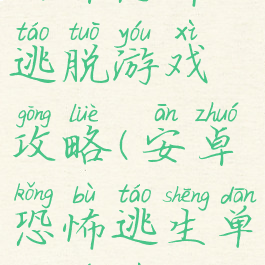 táo tuō yóu xì
逃脱游戏
gōng lüè ān zhuó
攻略(安卓
kǒng bù táo shēng dān
恐怖逃生单